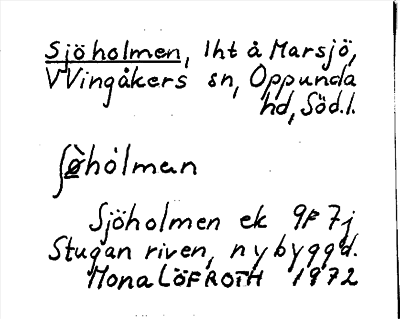 Sjöholmen, lht å Marsjö,
V Vingåkers sn, Oppunda
hd, Söd.l.
ʃø̀hólman
Sjöholmen ek 9F7j
Stugan riven, nybyggd.
Mona LÖFROTH 1972